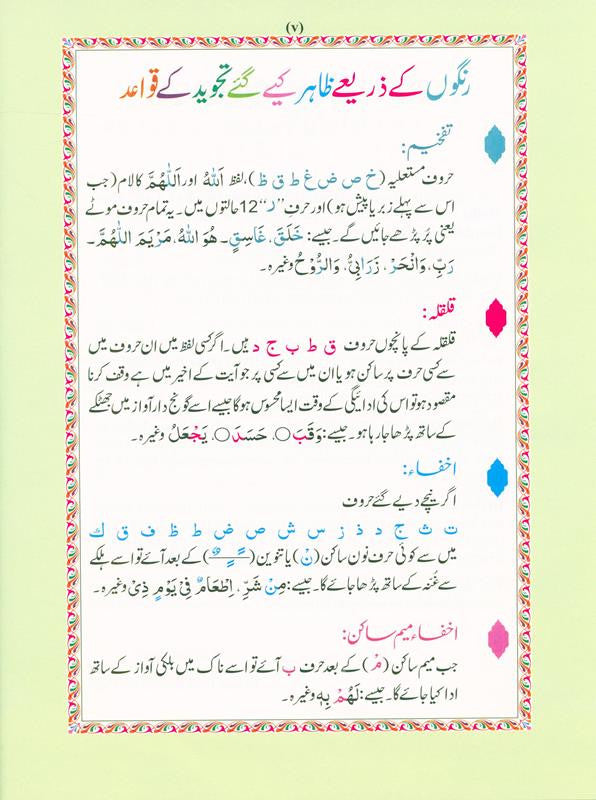 (٧)
رنگوں کے ذریعے ظاہر کیے گئے تجوید کے قواعد
تفخیم:
حروف مستعلیہ (خ ص ض غ ط ق ظ)، لفظ اَللّٰهُ اور اَللّٰهُمَّ کا لام (جب
اس سے پہلے زبر یا پیش ہو) اور حرف ”ر“ 12 حالتوں میں۔ یہ تمام حروف موٹے
یعنی پُر پڑھے جائیں گے۔ جیسے: خَلَقَ، غَاسِقٍ۔ هُوَ اللّٰهُ، مَرْيَمَ اللّٰهُمَّ۔
رَبِّ، وَانْحَرْ، زَرَابِيُّ، وَالرُّوْحُ وغیرہ۔
قلقلہ:
قلقلہ کے پانچوں حروف ق ط ب ج د ہیں۔ اگر کسی لفظ میں ان حروف میں
سے کسی حرف پر ساکن ہو یا ان میں سے کسی پر جو آیت کے اخیر میں ہے وقف کرنا
مقصود ہو تو اس کی ادائیگی کے وقت ایسا محسوس ہوگا جیسے اسے گونج دار آواز میں جھٹکے
کے ساتھ پڑھا جا رہا ہو۔ جیسے: وَقَبَ○، حَسَدَ○، يَجْعَلُ وغیرہ۔
اخفاء:
اگر نیچے دیے گئے حروف
ت ث ج د ذ ز س ش ص ض ط ظ ف ق ك
میں سے کوئی حرف نون ساکن (نْ) یا تنوین (ـًـٍـٌ) کے بعد آئے تو اسے ہلکے
سے غُنہ کے ساتھ پڑھا جائے گا۔ جیسے: مِنْ شَرِّ، اِطْعَامٌ فِيْ يَوْمٍ ذِيْ وغیرہ۔
اخفاء میم ساکن:
جب میم ساکن (مْ) کے بعد حرف ب آئے تو اسے ناک میں ہلکی آواز کے ساتھ
ادا کیا جائے گا۔ جیسے: لَهُمْ بِهٖ وغیرہ۔